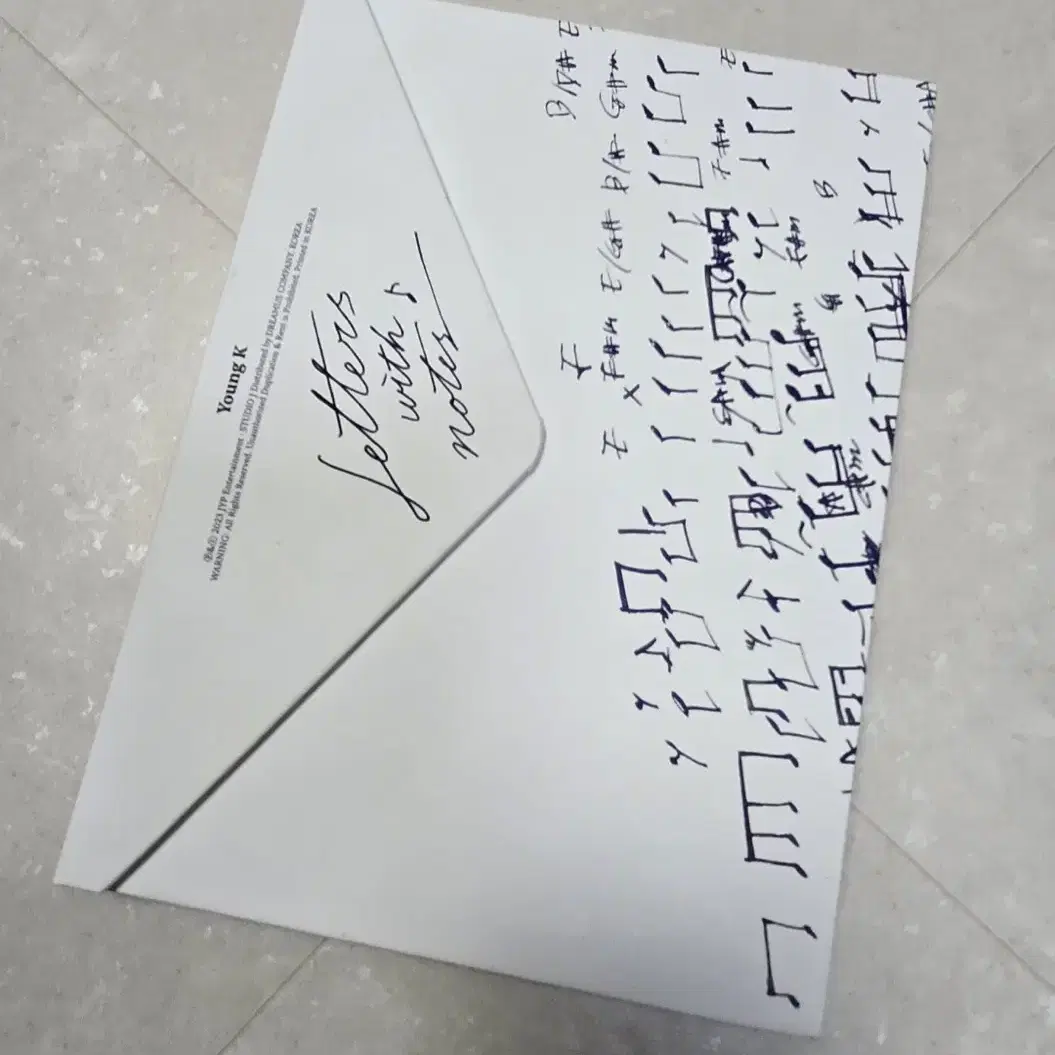 Young K
Ⓟ&ⓒ 2023 JYP Entertainment · STUDIO J Distributed by DREAMUS COMPANY, KOREA
WARNING: All Rights Reserved. Unauthorized Duplication & Rent is Prohibited. Printed in KOREA
Letters
with ♪
notes
B/D# E
E F#m E/G# B/A G#m
F#m
G#m
F#m
B
G#m
G#m